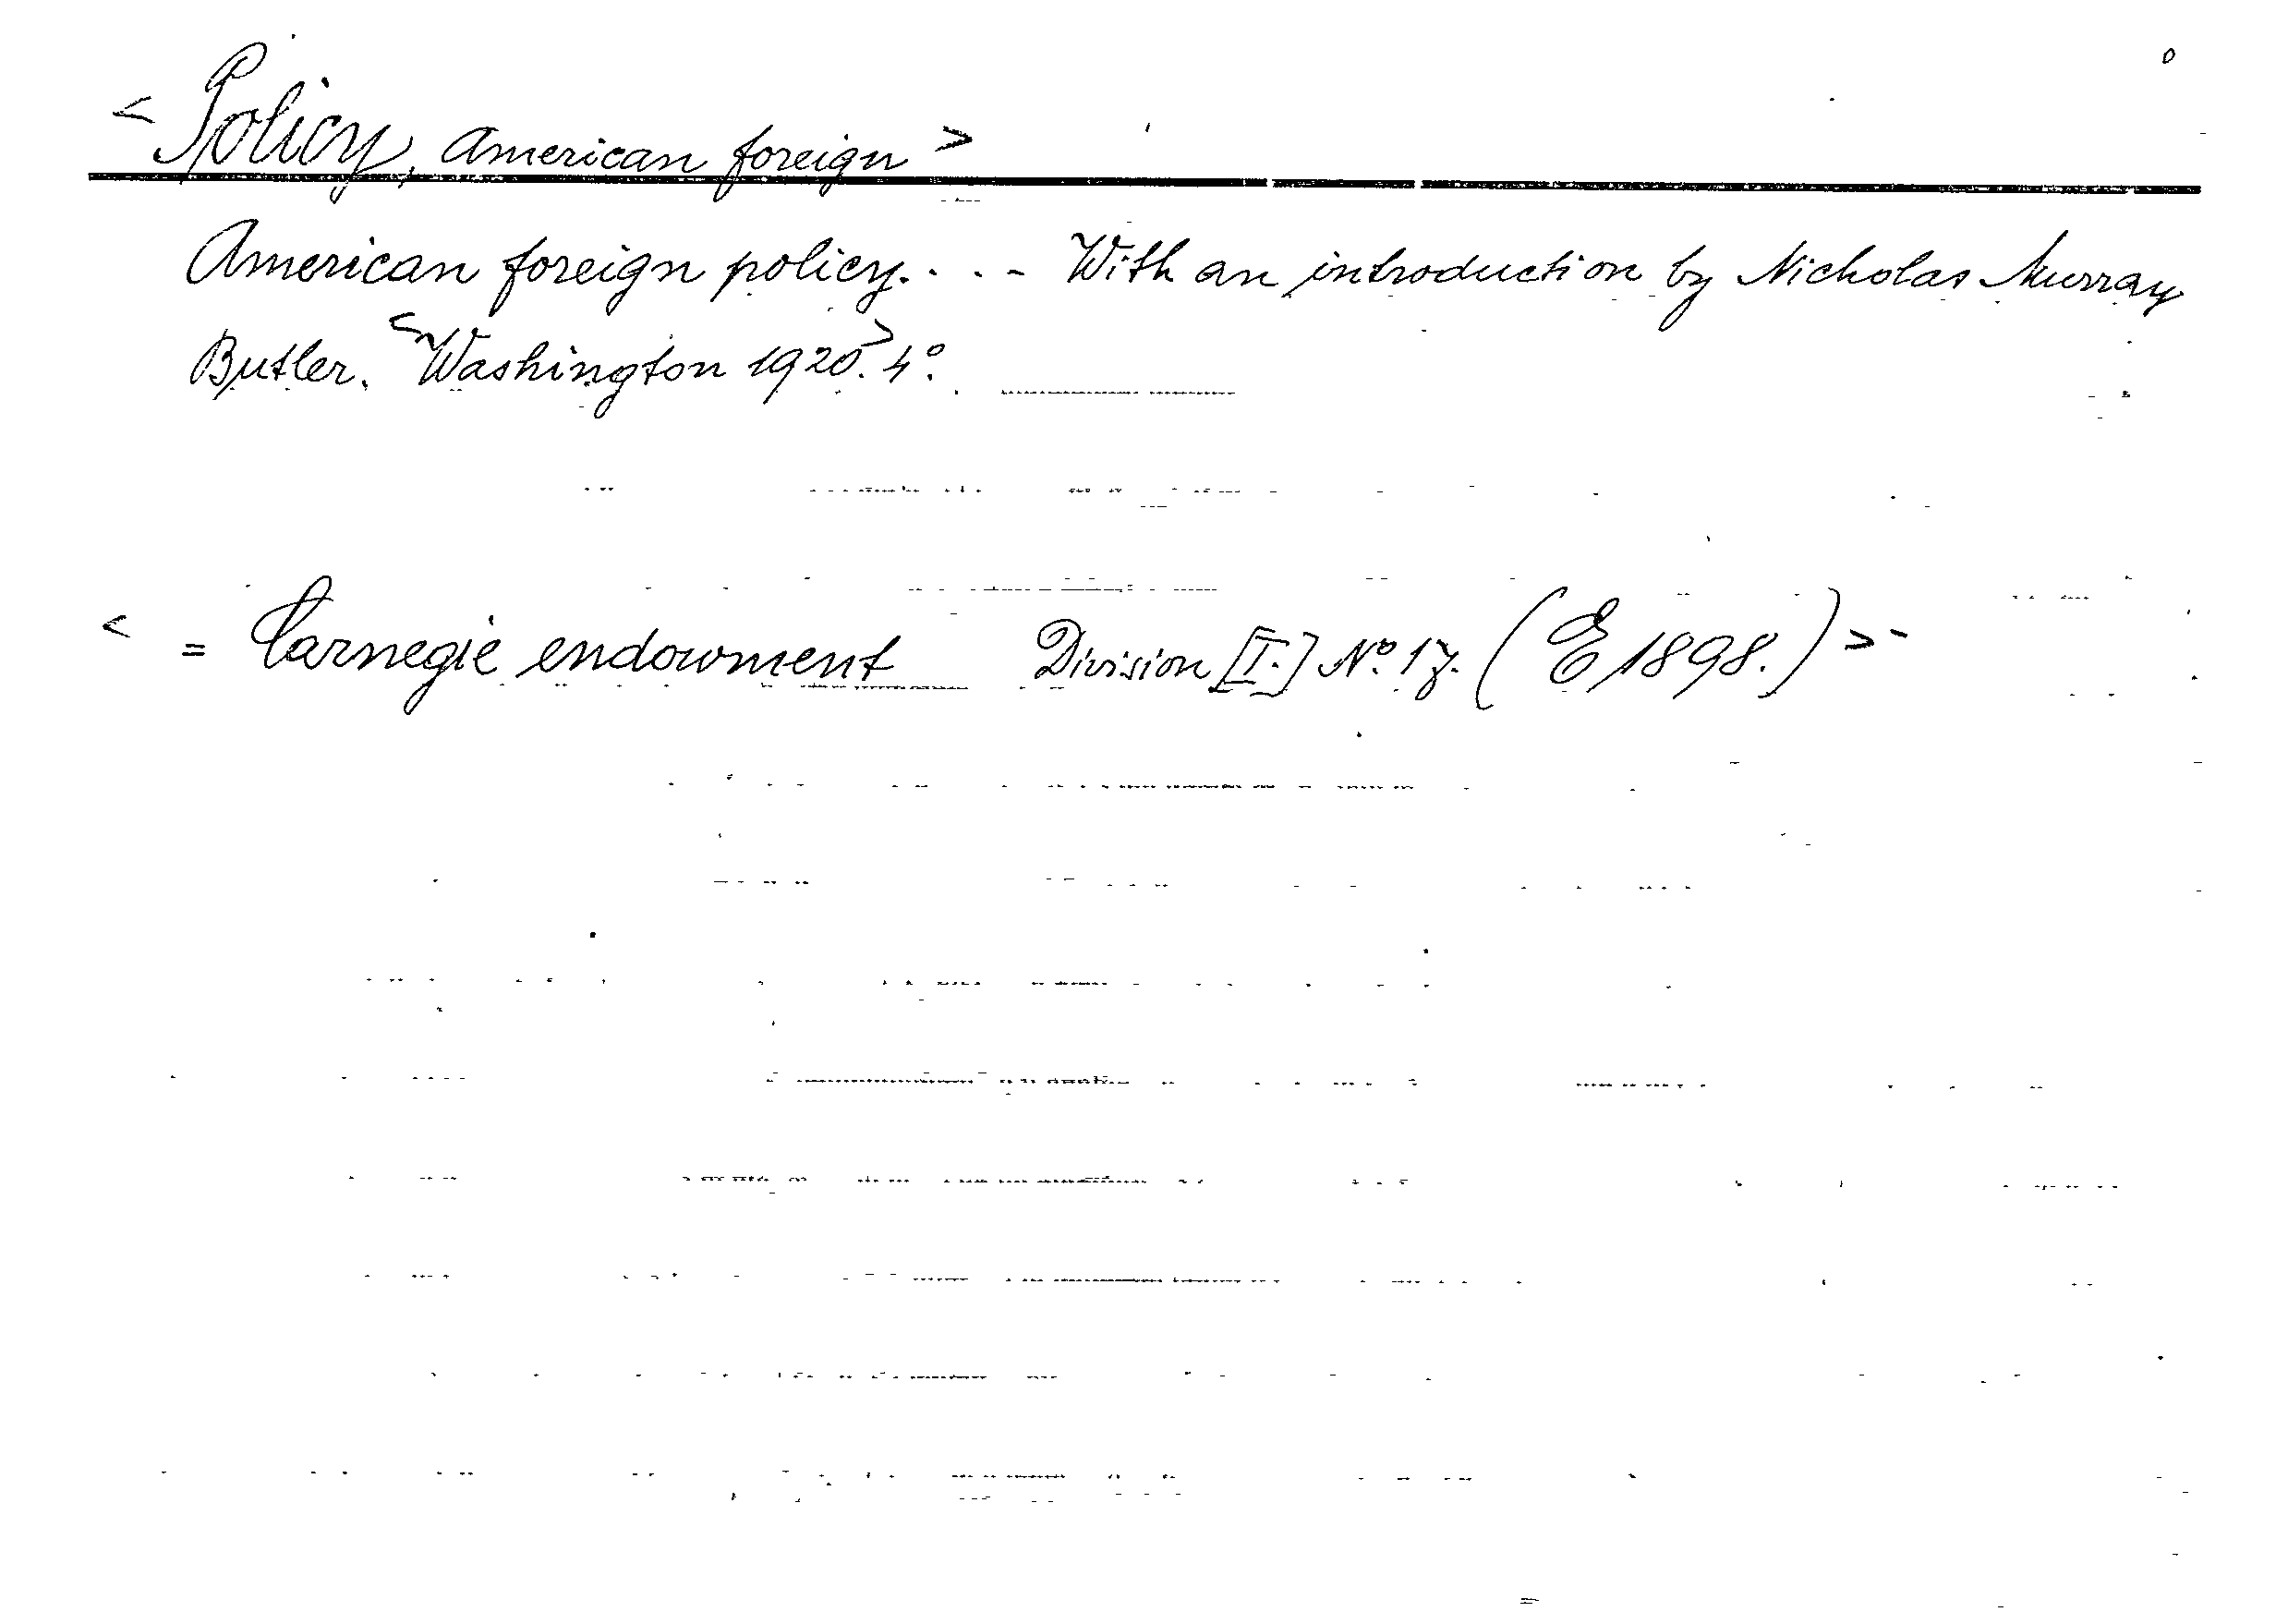 < Policy, American foreign >
American foreign policy. . . - With an introduction by Nicholas Murray
Butler. <Washington 1920.> 4°.
< = Carnegie endowment Division [I.] N° 17. (E 1898.) >-